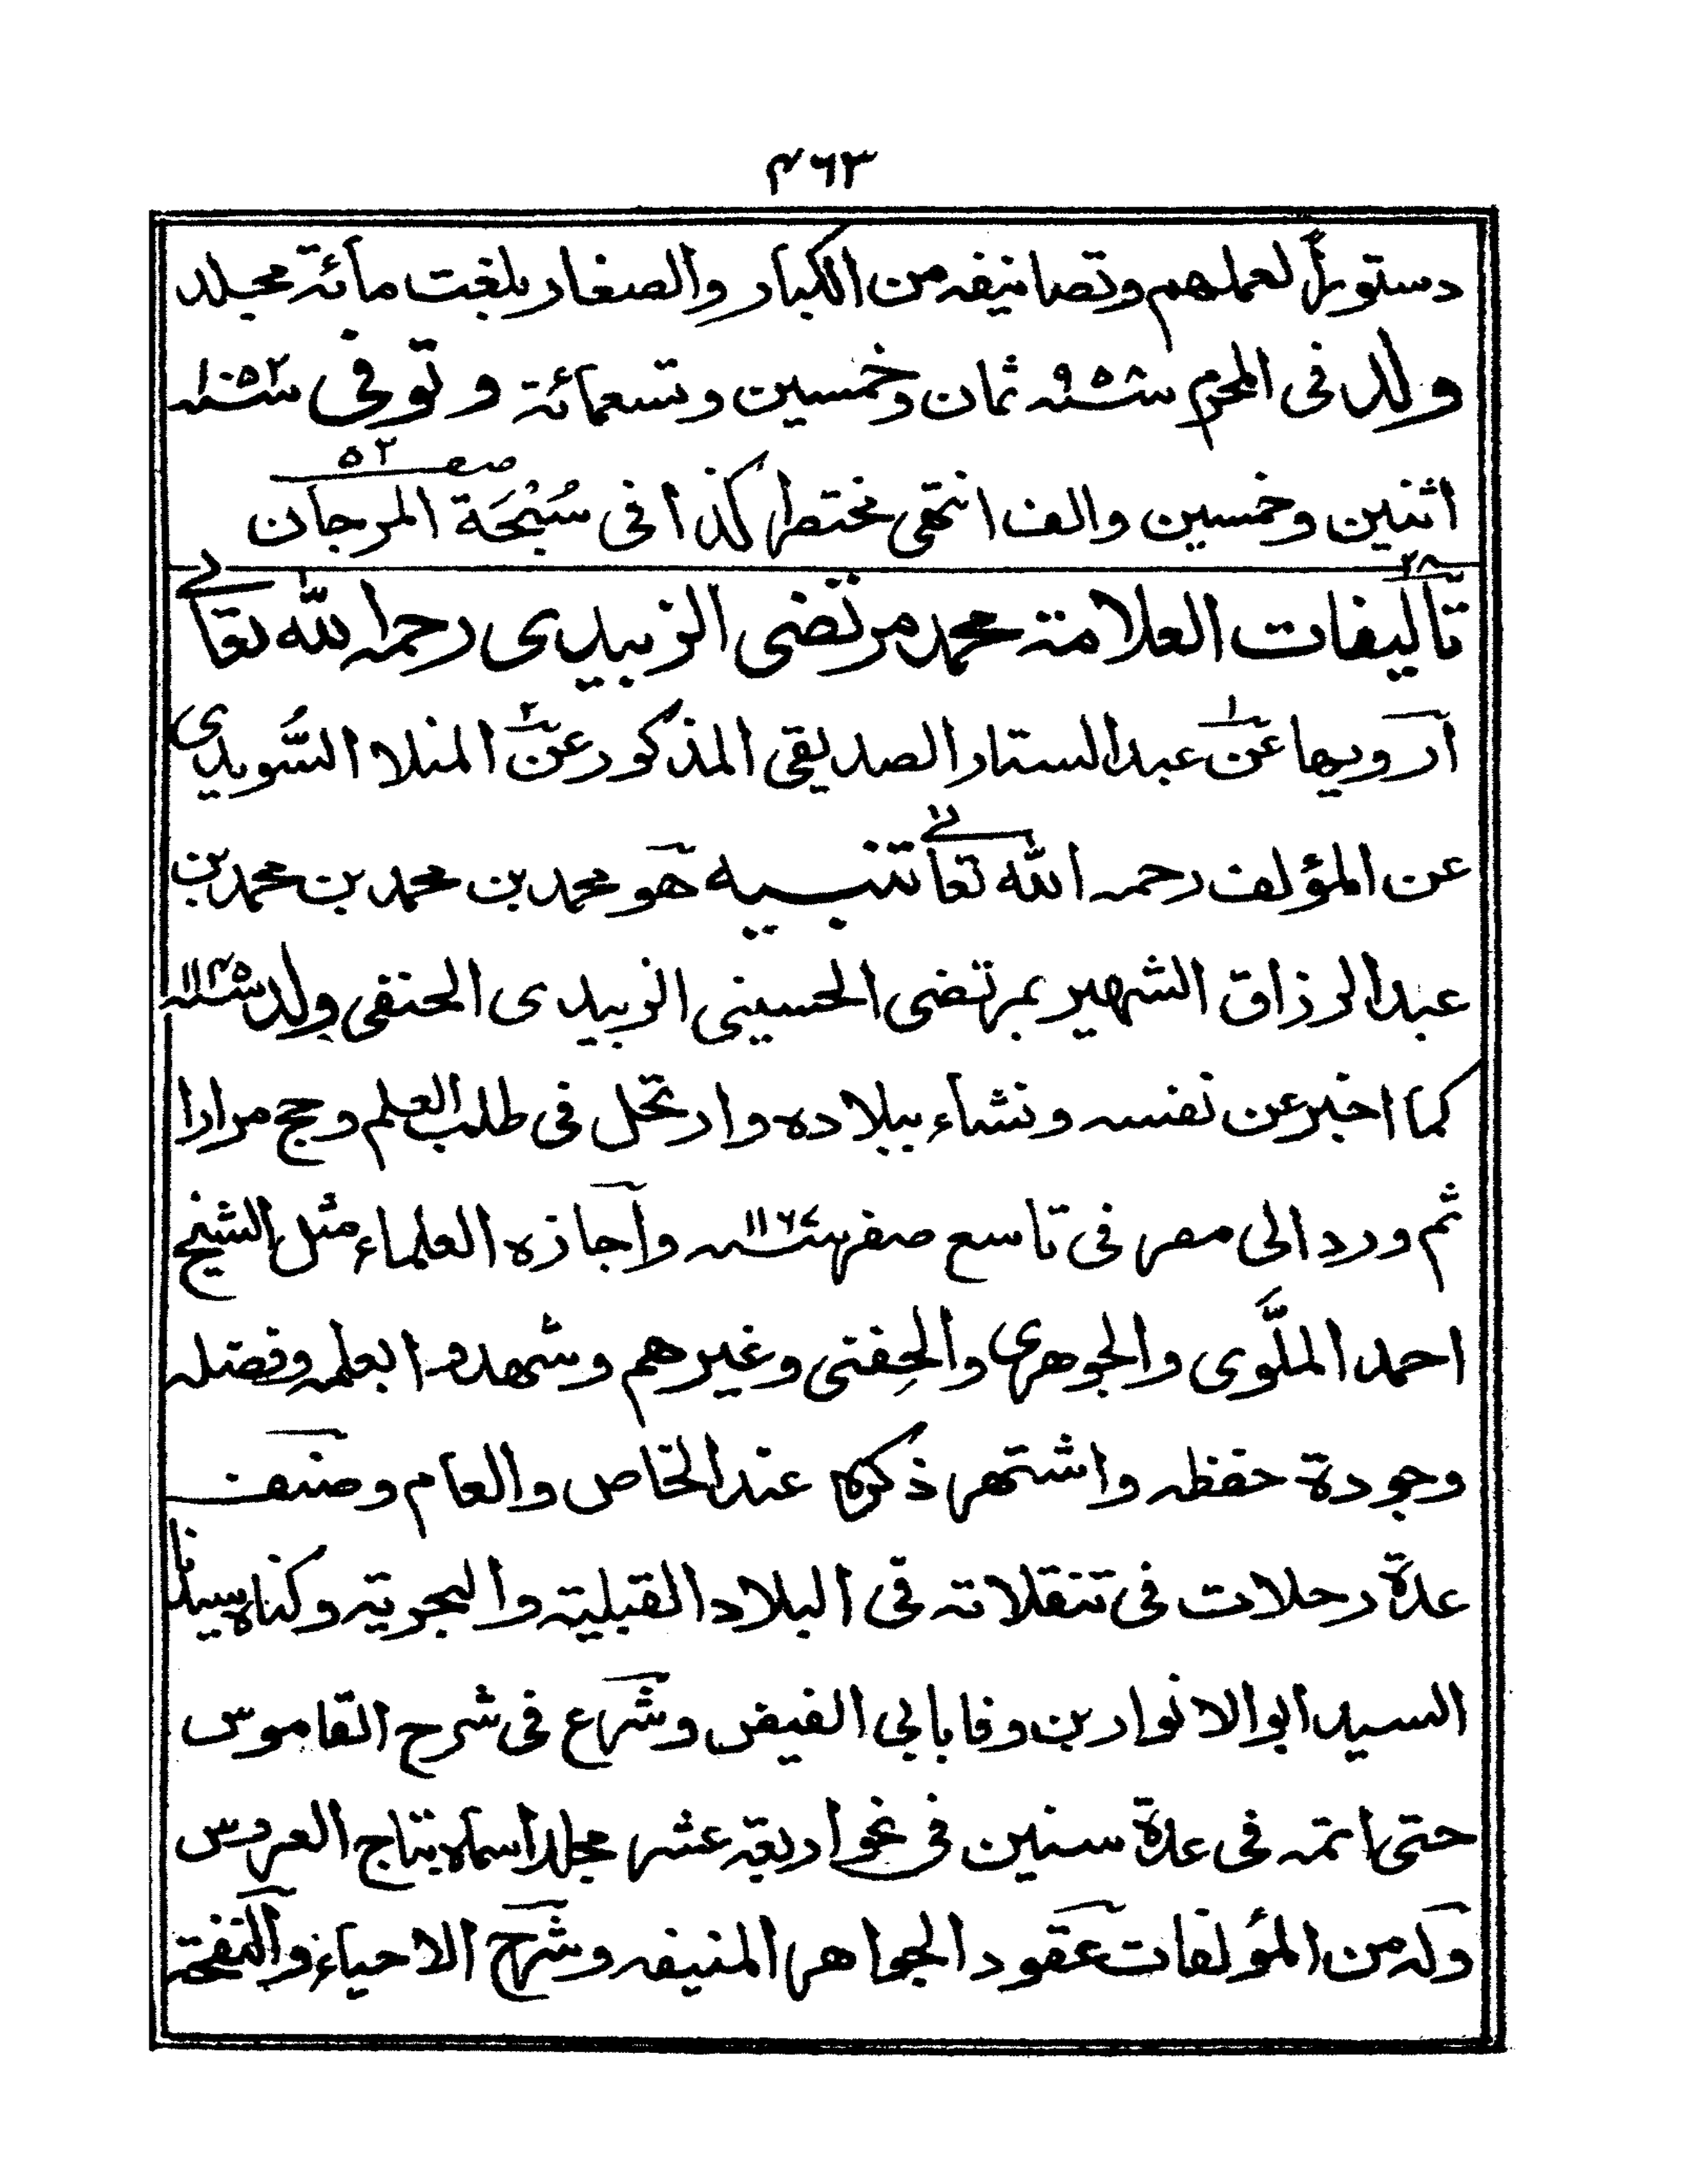 ۴۶۳
دستوراً لعملهم وتصانيفه من الكبار والصغار بلغت مائة مجلد
ولد فى المحرم سنه ۹۵۸ ثمان وخمسين وتسعمائة وتوفى سنه ۱۰۵۲
اثنين وخمسين والف انتهى مختصرا كذا فى سُبْحَة المرجان صه ۵۲
۲۸
تآليفات العلامة محمد مرتضى الزبيدى رحمه الله تعالے
أرويها عن۱ عبد الستار الصديقى المذكور عن۲ المنلا السُّويدى
عن المؤلف رحمه الله تعالے تنبيه هو محمد بن محمد بن محمد بن
عبد الرزاق الشهير بمرتضى الحسينى الزبيدى الحنفى ولد سنه ۱۱۴۵
كما اخبر عن نفسه ونشاء ببلاده وارتحل فى طلب العلم وحج مرارا
ثم ورد الى مصر فى تاسع صفر سنه ۱۱۶۷ وأجازه العلماء مثل الشيخ
احمد الملَّوى والجوهرى والحِفنى وغيرهم وشهدوا بعلمه وفضله
وجودة حفظه واشتهر ذكره عند الخاص والعام وصنف
عدة رحلات فى تنقلاته فى البلاد القبلية والبحرية وكناه سيدنا
السيد ابو الانوار بن وفا بابي الفيض وشرع فى شرح القاموس
حتى اتمه فى عدة سنين فى نحو اربعة عشر مجلدا سماه بتاج العروس
وله من المؤلفات عقود الجواهر المنيفه وشرح الاحياء والنفحة